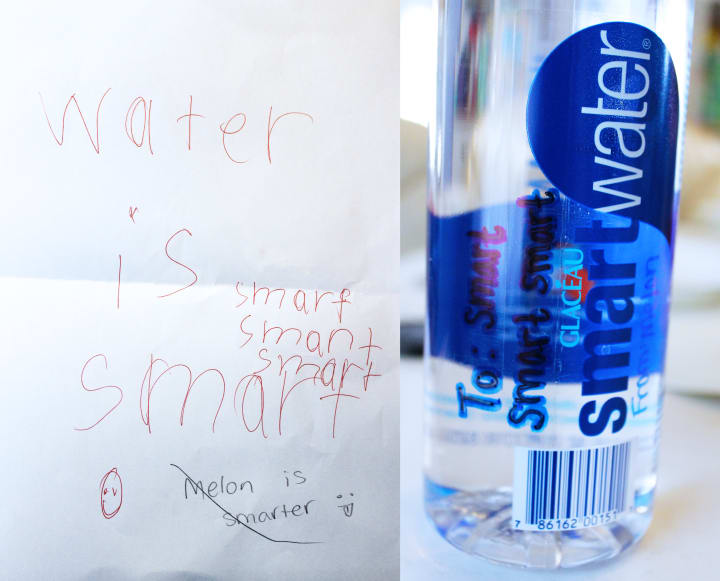 water
is
smart
smart
smart
smart
Melon is
smarter
To: Smart
Smart smart
GLACÉAU
smartwater®
From: Melon
7 86162 00151